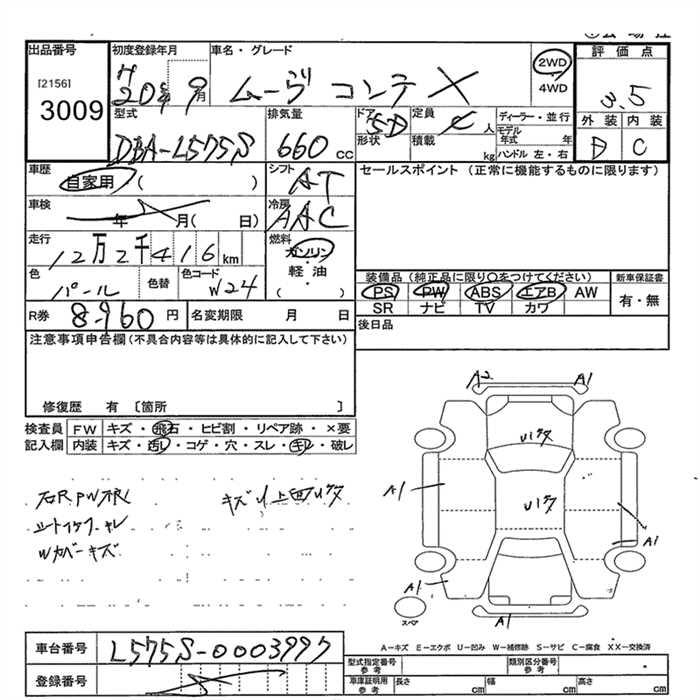 出品番号 初度登録年月 車名・グレード 2WD 4WD 評価点
[2156] 3009 H20年9月 ムーヴ コンテ X 3.5
外装 内装
D C
型式 排気量 ドア形状 定員 積載 ディーラー・並行
DBA-L575S 660cc 5D 4人 kg モデル年式 年
ハンドル 左・右
車歴 シフト セールスポイント (正常に機能するものに限ります)
自家用 ( ) AT
車検 年 月( 日) 冷房 AAC
走行 12万2千416km 燃料 ガソリン・軽油・( )
色 パール 色替 色コード W24
装備品 (純正品に限り○をつけてください) 新車保証書
PS PW ABS エアB AW 有・無
SR ナビ TV カワ
R券 8960円 名変期限 月 日 後日品
注意事項申告欄(不具合内容等は具体的に記入して下さい)
修復歴 有 〔箇所 〕
検査員記入欄 FW キズ・飛石・ヒビ割・リペア跡・×要
内装 キズ・汚レ・コゲ・穴・スレ・キレ・破レ
A2 A1
Uハタ
Uハタ
A1
A1
A1
A1
スペア
Wカバーキズ
A-キズ E-エクボ U-凹み W-補修跡 S-サビ C-腐食 XX-交換済
車台番号 L575S-0003997
登録番号
型式指定番号 参考 類別区分番号 参考
車庫証明用 参考 長さ cm 幅 cm 高さ cm